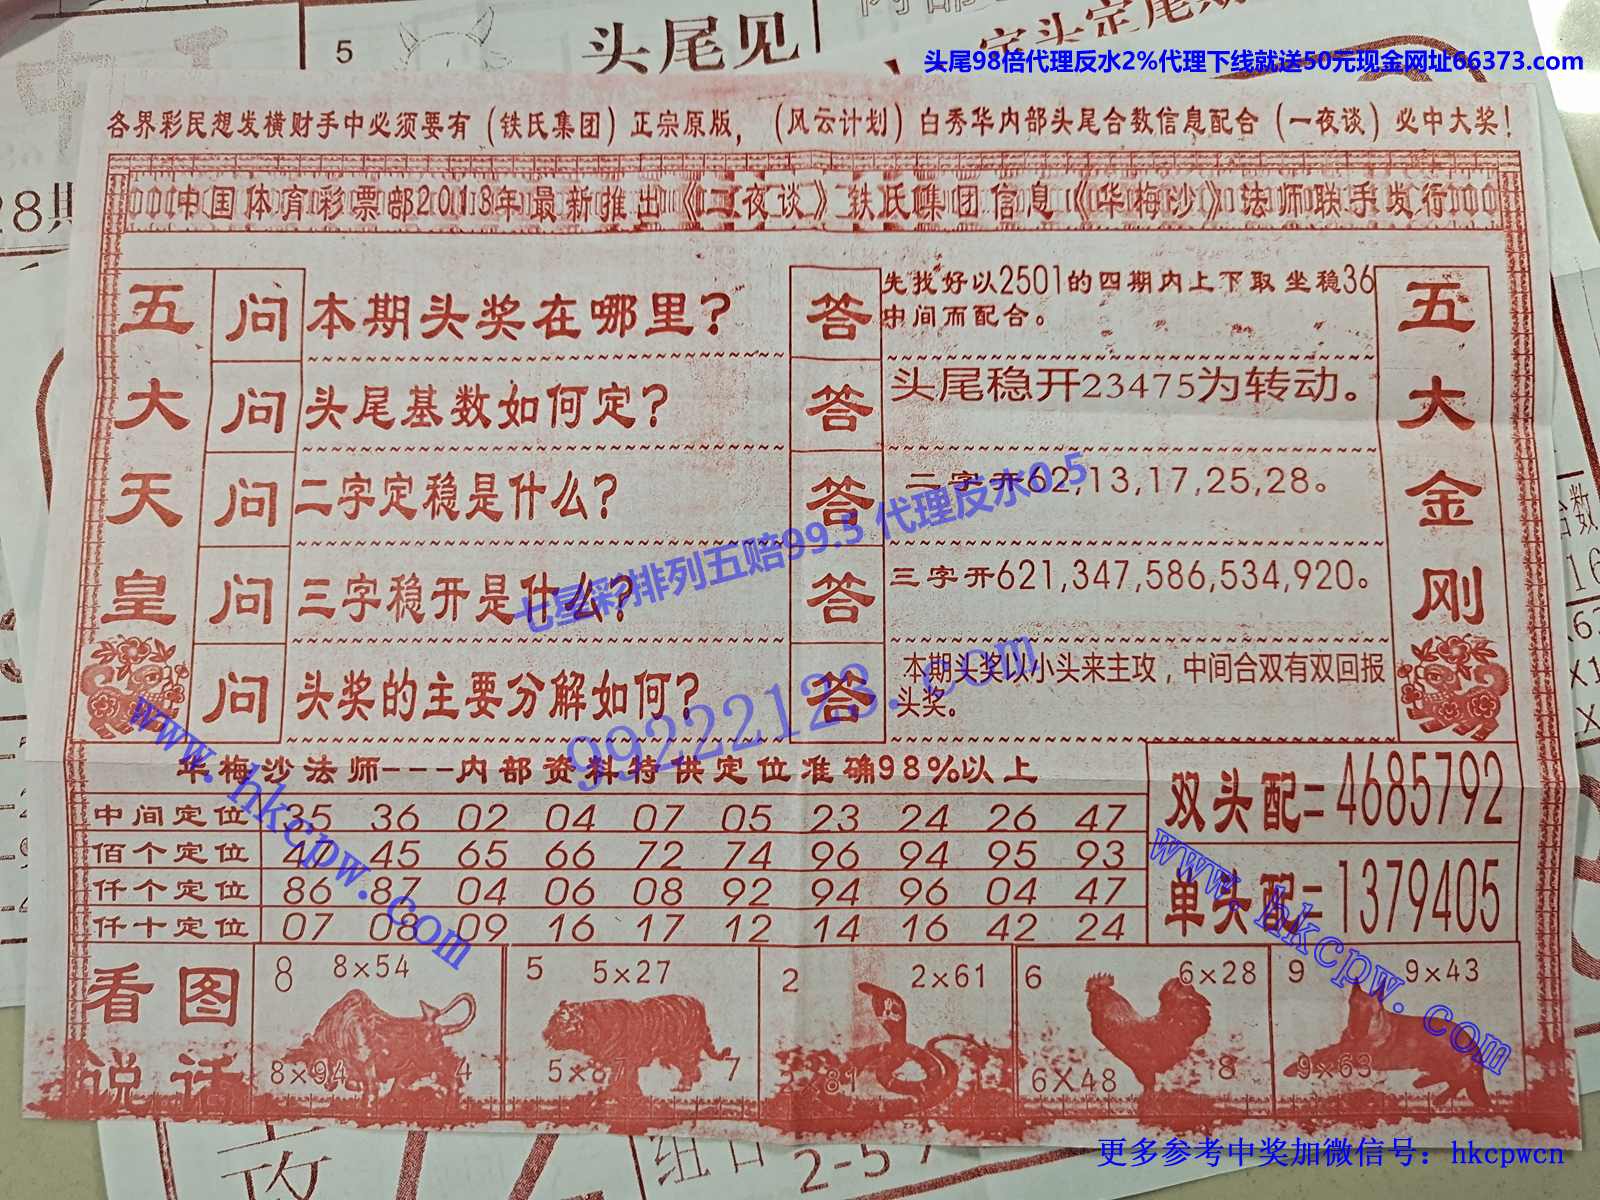 5
头尾见
头尾98倍代理反水2%代理下线就送50元现金网址66373.com
各界彩民想发横财手中必须要有（铁氏集团）正宗原版，（风云计划）白秀华内部头尾合数信息配合（一夜谈）必中大奖！
中国体育彩票部2013年最新推出《二夜谈》铁氏集团信息《华梅沙》法师联手发行
28期
五大天皇
问 本期头奖在哪里？
答 先找好以2501的四期内上下取坐稳36
中间而配合。
问 头尾基数如何定？
答 头尾稳开23475为转动。
问 二字定稳是什么？
答 二字开62,13,17,25,28。
问 三字稳开是什么？
答 三字开621,347,586,534,920。
问 头奖的主要分解如何？
答 本期头奖以小头来主攻，中间合双有双回报
头奖。
五大金刚
七星彩排列五赔99.5 代理反水0.5
99222123.com
www.hkcpw.com
华梅沙法师---内部资料特供定位准确98%以上
中间定位 35 36 02 04 07 05 23 24 26 47
佰个定位 40 45 65 66 72 74 96 94 95 93
仟个定位 86 87 04 06 08 92 94 96 04 47
仟十定位 07 08 09 16 17 12 14 16 42 24
双头配=4685792
单头配=1379405
www.hkcpw.com
看图
说话
8 8×54
8×94 4
5 5×27
5×87 7
2 2×61
×81
6 6×28
6×48 8
9 9×43
9×63
更多参考中奖加微信号：hkcpwcn